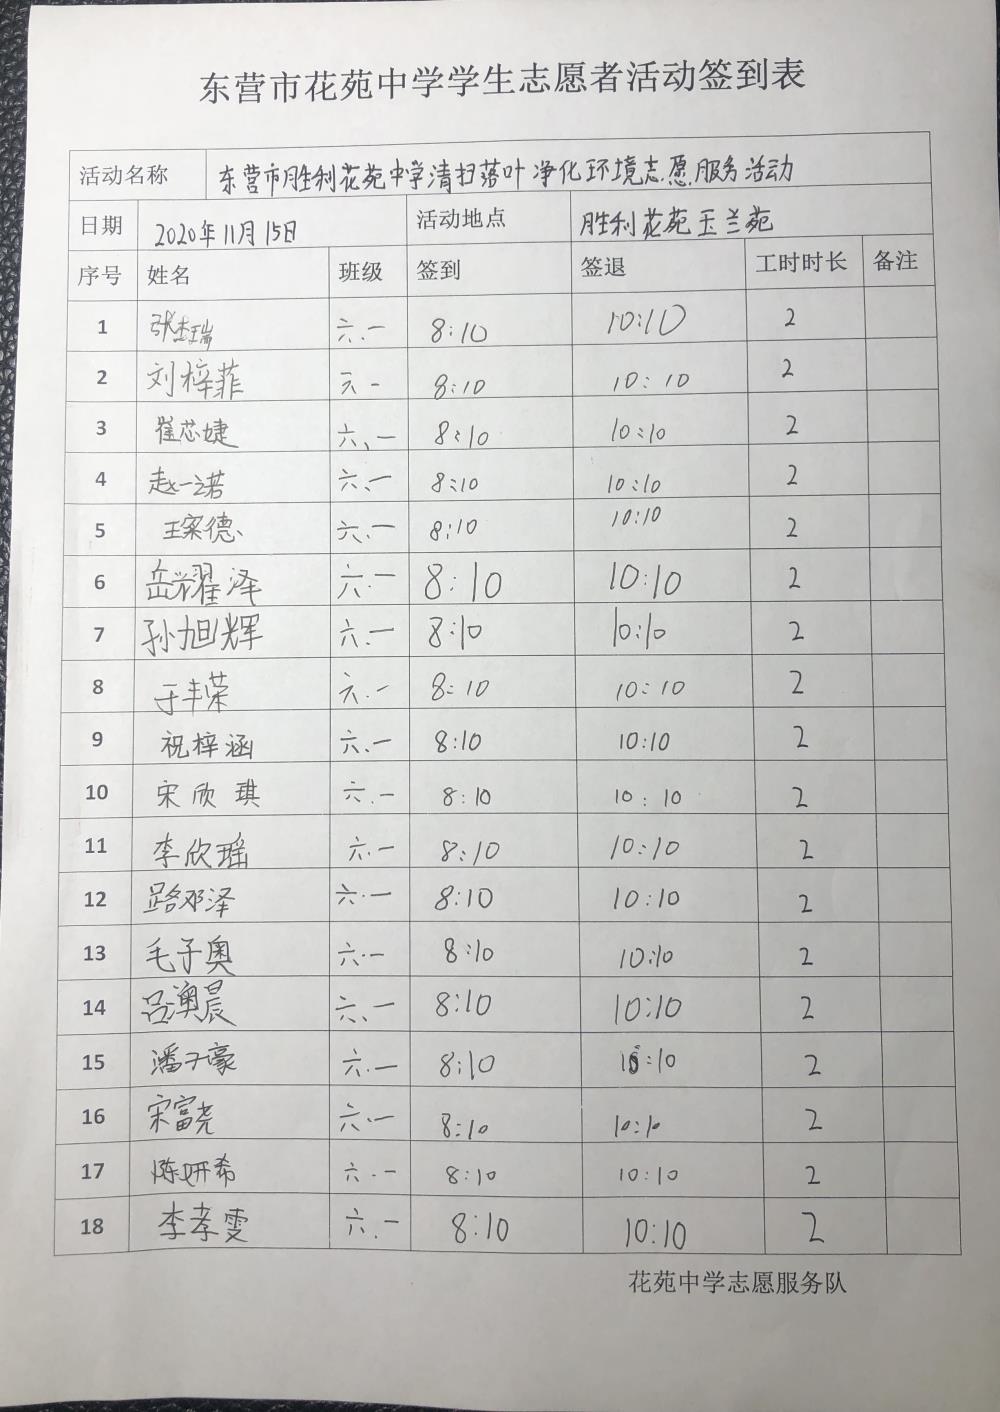 东营市花苑中学学生志愿者活动签到表
活动名称 东营市胜利花苑中学清扫落叶净化环境志愿服务活动
日期 2020年11月15日 活动地点 胜利花苑玉兰苑
序号 姓名 班级 签到 签退 工时时长 备注
1 张 瑞 六.一 8:10 10:10 2
2 刘梓菲 六一 8:10 10:10 2
3 崔芯婕 六、一 8:10 10:10 2
4 赵一诺 六、一 8:10 10:10 2
5 王寀德 六.一 8:10 10:10 2
6 岳耀泽 六.一 8:10 10:10 2
7 孙旭辉 六.一 8:10 10:10 2
8 于丰荣 六.一 8:10 10:10 2
9 祝梓涵 六、一 8:10 10:10 2
10 宋欣琪 六.一 8:10 10:10 2
11 李欣瑶 六.一 8:10 10:10 2
12 路邓泽 六.一 8:10 10:10 2
13 毛子奥 六.一 8:10 10:10 2
14 吕澳晨 六、一 8:10 10:10 2
15 潘子豪 六.一 8:10 10:10 2
16 宋富尧 六.一 8:10 10:10 2
17 陈妍希 六.一 8:10 10:10 2
18 李孝雯 六.一 8:10 10:10 2
花苑中学志愿服务队